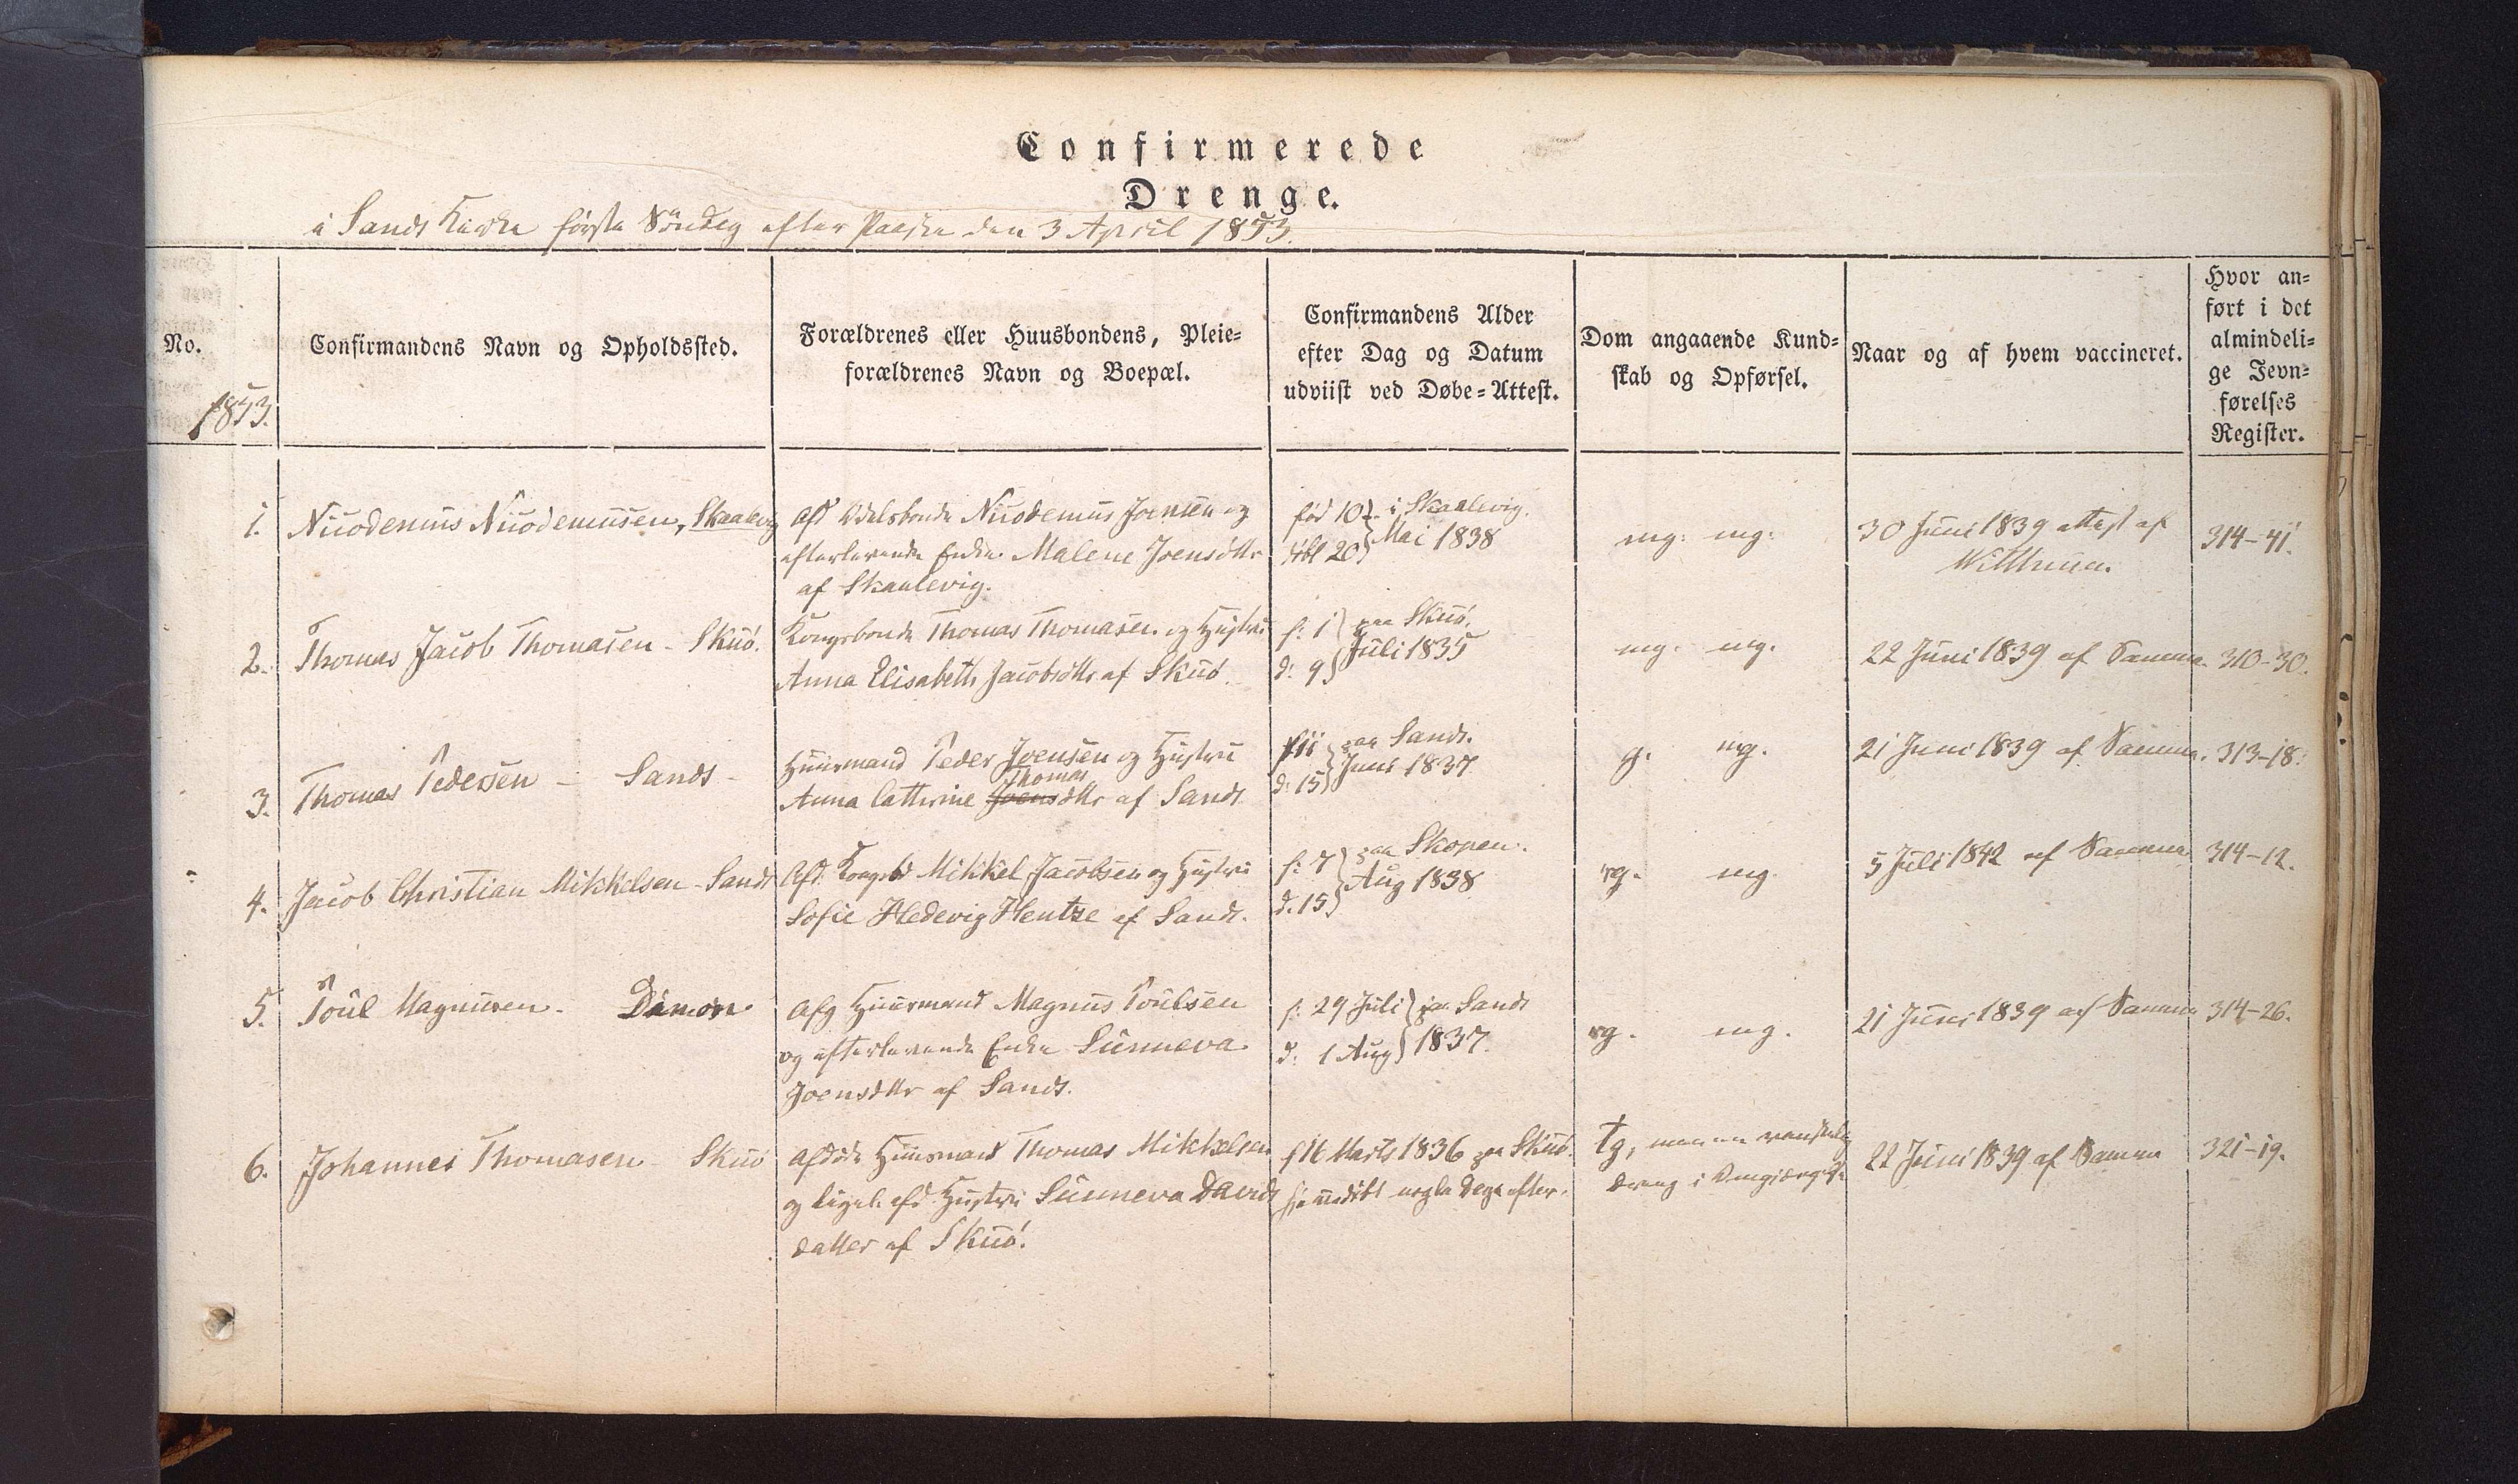 Confirmerede
Drenge.
i Sands Kirke første Søndag efter Paaske den 3 April 1853.
No.
1853.
Confirmandens Navn og Opholdssted.
Forældrenes eller Huusbondens, Pleie=
forældrenes Navn og Boepæl.
Confirmandens Alder
efter Dag og Datum
udviist ved Døbe=Attest.
Dom angaaende Kund=
skab og Opførsel.
Naar og af hvem vaccineret.
Hvor an=
ført i det
almindeli=
ge Jevn=
førelses
Register.
1. Nicodemus Nicodemusen, Skaalevig
Afd Odelsbonde Nicodemus Joensen og
efterlevende Enke Malene Joensdttr
af Skaalevig.
fød 10 i Skaalevig.
dbt 20 Mai 1838
mg. mg.
30 Juni 1839 attest af
314-41.
2. Thomas Jacob Thomasen - Skuö.
Kongsbonde Thomas Thomasen og Hustru
Anna Elisabeth Jacobsdttr af Skuö.
f: 1 paa Skuö.
d: 9 Juli 1835
mg. mg.
22 Juni 1839 af Samme.
310-30.
3. Thomas Pedersen - Sands -
Huusmand Peder Joensen og Hustru
Thomas
Anna Cathrine Joensdttr af Sands
f 11 paa Sands.
d: 15 Juni 1837
g. mg.
21 Juni 1839 af Samme.
313-18.
4. Jacob Christian Mikkelsen - Sands
Afd. Kongsb Mikkel Jacobsen og Hustru
Sofie Hedevig Hentze af Sands.
f: 7 paa Skopen.
d. 15 Aug 1838
rg. mg.
5 Juli 1842 af Samme
314-12.
5. Poul Magnusen - Dimon
Afg Huusmand Magnus Poulsen
og efterlevende Enke Sunneva
Joensdttr af Sands.
f: 29 Juli paa Sands
d: 1 Aug 1837.
rg. mg.
21 Juni 1839 af Samme
314-26.
6. Johannes Thomasen - Skuö
Afdøde Huusmand Thomas Mikkelsen
og ligel. afd Hustru Sunneva Davids
datter af Skuö.
f 16 Marts 1836 paa Skuö.
hjemmedøbt nogle Dage efter.
tg, men en
Dreng i
22 Juni 1839 af Samme
321-19.